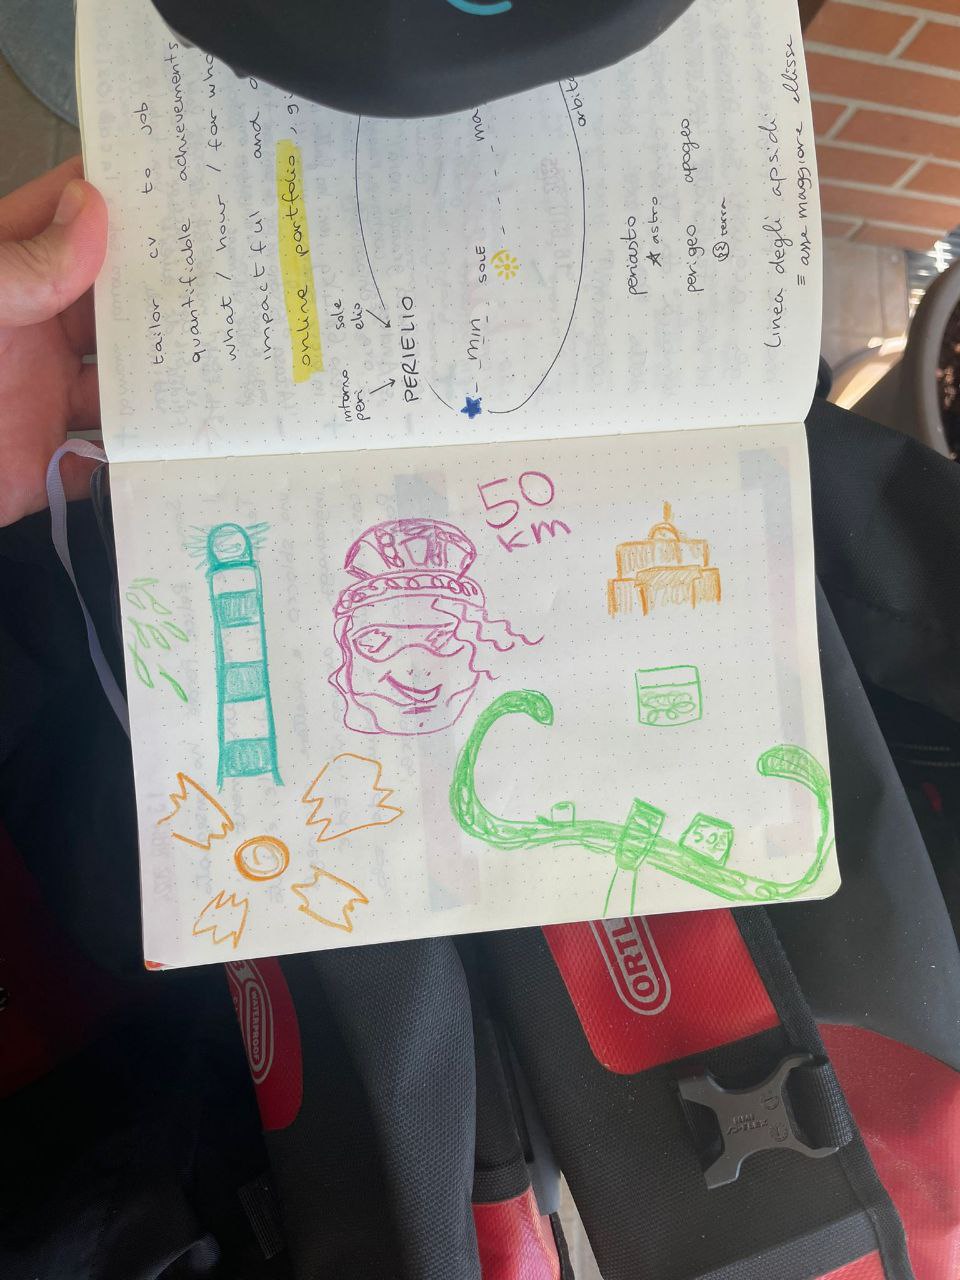 tailor cv to job
quantifiable achievements
what / how / for who
impactful and
online portfolio,
intorno sole
peri elio
PERIELIO
min SOLE ma
orbita
periasto
astro
perigeo apogeo
terra
linea degli apsidi
= asse maggiore ellisse
50
km
505
ORTL
WATERPROOF